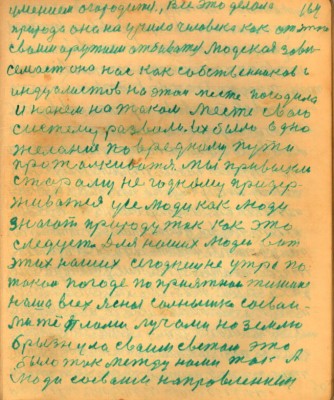 умением огородит., Все это делала 164
природа она научило человека как от этого
своим другим отбыват. Людская зави-
семаст она нас как собственников и
индуалистов на этом месте посадила
и начем на таком месте свою
систему развили. Их было одно
желание по вредному пути
проталкиватя. Мы привыкли
старому не годному придер-
живатся уве люди как люди
знают природу так как это
следует. Для наших людей вот
этих наших сегоднешне утро по
такой погоде по приятной тишине
наша всех ясная солнышка со сваи-
ми теплами лучами на землю
брызнула своим светом это
было так между нами так А
люди со своими направленным